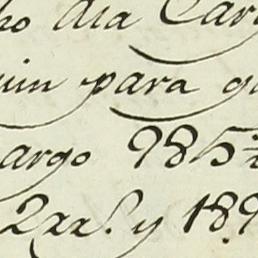 ho dia Car
uin para q
argo 985
2rrs. y 189